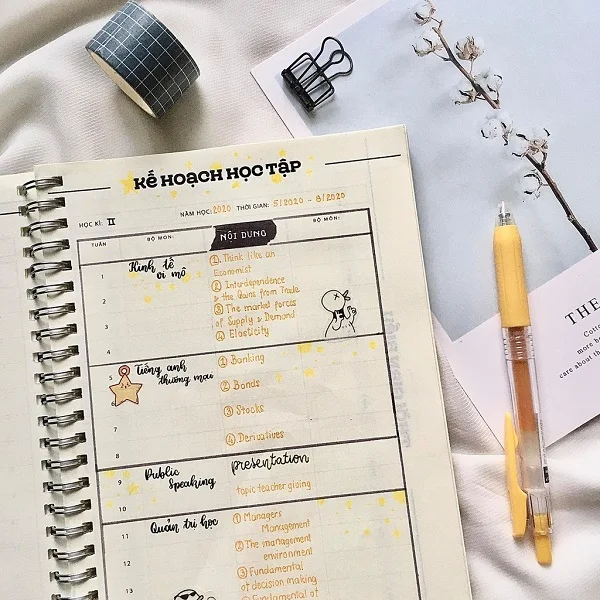 KẾ HOẠCH HỌC TẬP
HỌC KÌ: II
NĂM HỌC: 2020 THỜI GIAN: 5/2020 - 8/2020
TUẦN
BỘ MÔN:
NỘI DUNG
BỘ MÔN:
1
2
3
4
Kinh tế
vi mô
① Think like an
Economist
② Interdependence
& the Gains from Trade
③ The market forces
of Supply & Demand
④ Elasticity
5
6
7
8
Tiếng anh
thương mại
① Banking
② Bonds
③ Stocks
④ Derivatives
9
10
Public
Speaking
presentation
topic teacher giving
11
12
13
Quản trị học
① Managers
Management
② The management
environment
③ Fundamental
of decision making
④ Fundamental of
THE
Cotto
more be
care about the